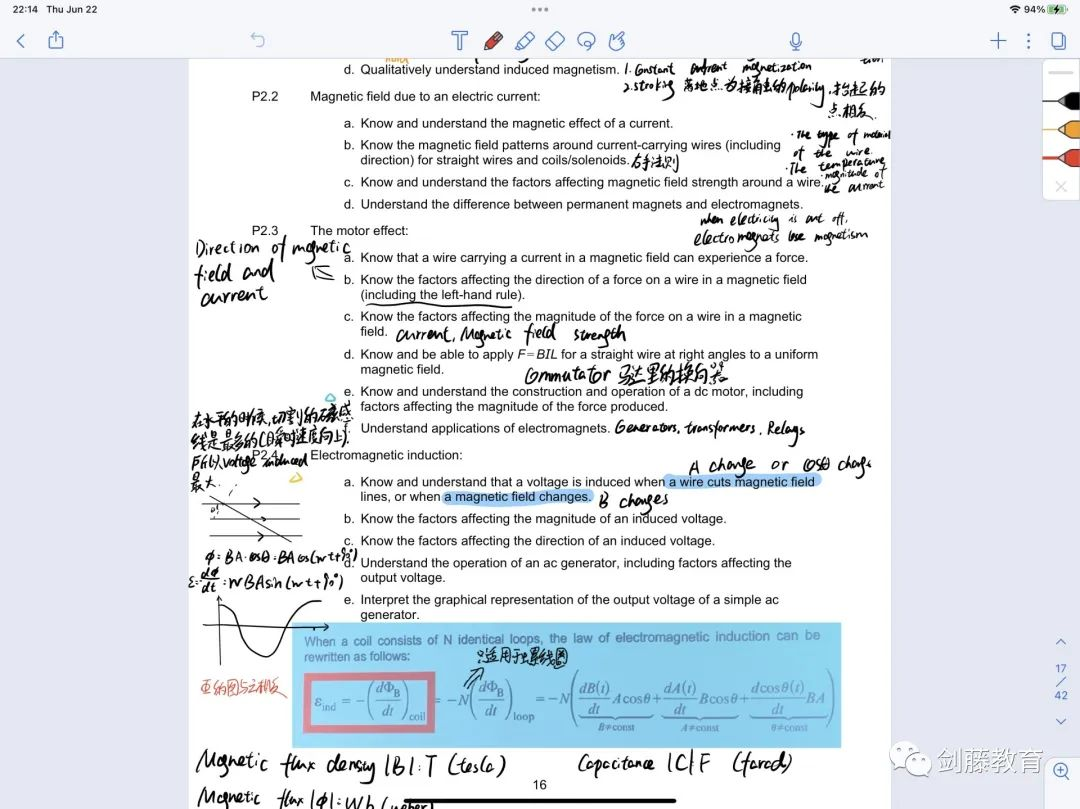 22:14 Thu Jun 22
94%
d. Qualitatively understand induced magnetism. 1. Constant current magnetization
2. stroking 落地点为接触击的polarity, 抬起的
点相反.
P2.2 Magnetic field due to an electric current:
a. Know and understand the magnetic effect of a current.
b. Know the magnetic field patterns around current-carrying wires (including
direction) for straight wires and coils/solenoids. 右手法则
· The type of material
of the wire.
· The temperature
· magnitude of
the current
c. Know and understand the factors affecting magnetic field strength around a wire.
d. Understand the difference between permanent magnets and electromagnets.
when electricity is cut off,
electromagnets lose magnetism
P2.3 The motor effect:
Direction of magnetic
field and
current
a. Know that a wire carrying a current in a magnetic field can experience a force.
b. Know the factors affecting the direction of a force on a wire in a magnetic field
(including the left-hand rule).
c. Know the factors affecting the magnitude of the force on a wire in a magnetic
field. current, Magnetic field strength
d. Know and be able to apply F=BIL for a straight wire at right angles to a uniform
magnetic field.
Commutator 马达里的换向器
e. Know and understand the construction and operation of a dc motor, including
factors affecting the magnitude of the force produced.
Understand applications of electromagnets. Generators, transformers, Relays
在水平的时候, 切割的磁感
线是最多的(瞬时速度向上).
所以, voltage induced
最大.
P2.4 Electromagnetic induction:
A change or cosθ change
a. Know and understand that a voltage is induced when a wire cuts magnetic field
lines, or when a magnetic field changes. B changes
b. Know the factors affecting the magnitude of an induced voltage.
c. Know the factors affecting the direction of an induced voltage.
d. Understand the operation of an ac generator, including factors affecting the
output voltage.
e. Interpret the graphical representation of the output voltage of a simple ac
generator.
Φ = BA·cosθ = BA cos(wt+90°)
ε = dΦ/dt = wBAsin(wt+90°)
When a coil consists of N identical loops, the law of electromagnetic induction can be
rewritten as follows:
只适用于螺线圈
ε_ind = −(dΦ_B/dt)_coil = −N(dΦ_B/dt)_loop = −N(dB(t)/dt Acosθ + dA(t)/dt Bcosθ + dcosθ(t)/dt BA)
B≠const A≠const θ≠const
Magnetic flux density |B|: T (tesla) Capacitance |C| F (farads)
16
Magnetic flux |Φ|: Wb (weber)
17
42
剑藤教育